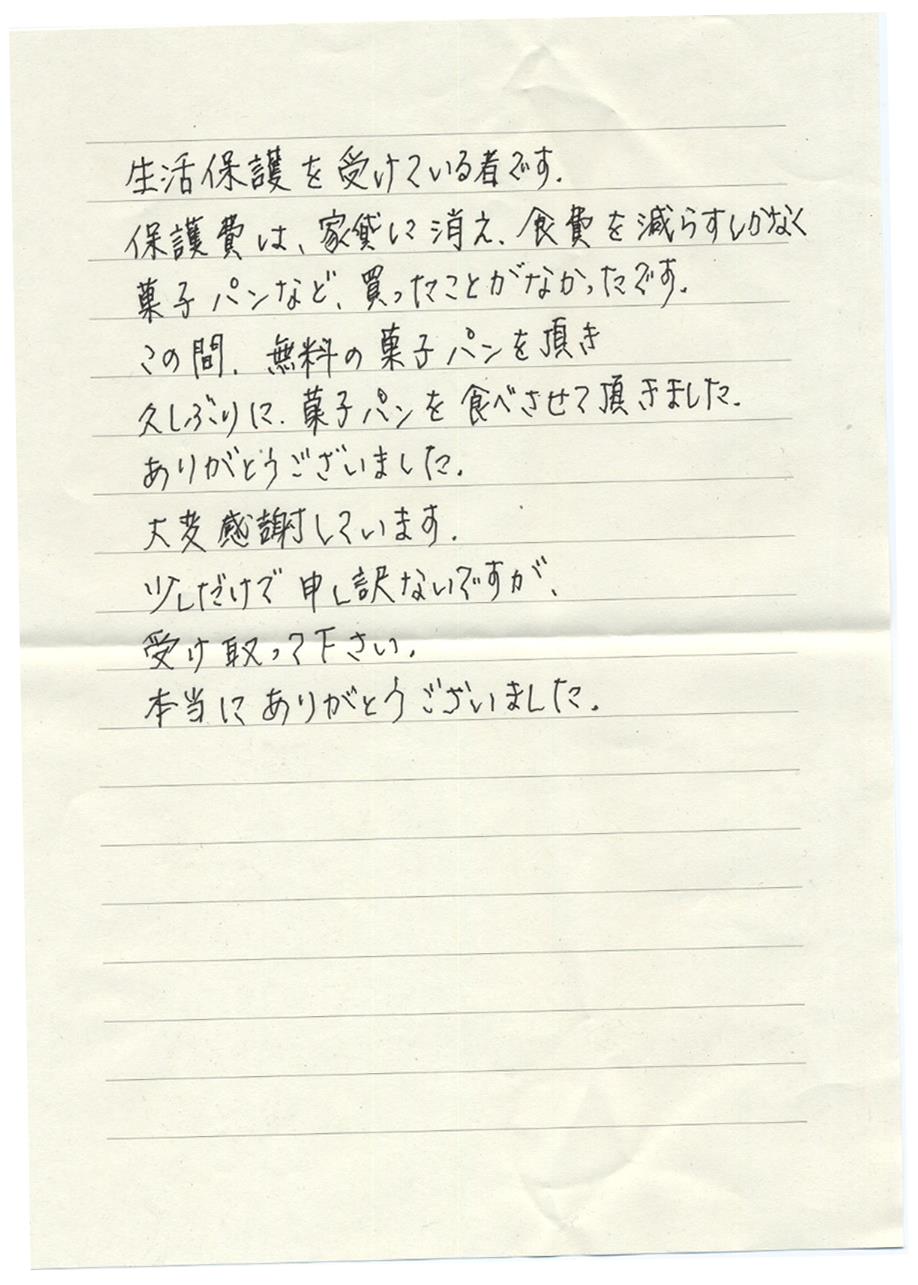 生活保護を受けている者です.
保護費は、家賃に消え、食費を減らすしかなく
菓子パンなど、買ったことがなかったです.
この間、無料の菓子パンを頂き
久しぶりに、菓子パンを食べさせて頂きました.
ありがとうございました.
大変感謝しています.
少しだけで申し訳ないですが、
受け取って下さい.
本当にありがとうございました.